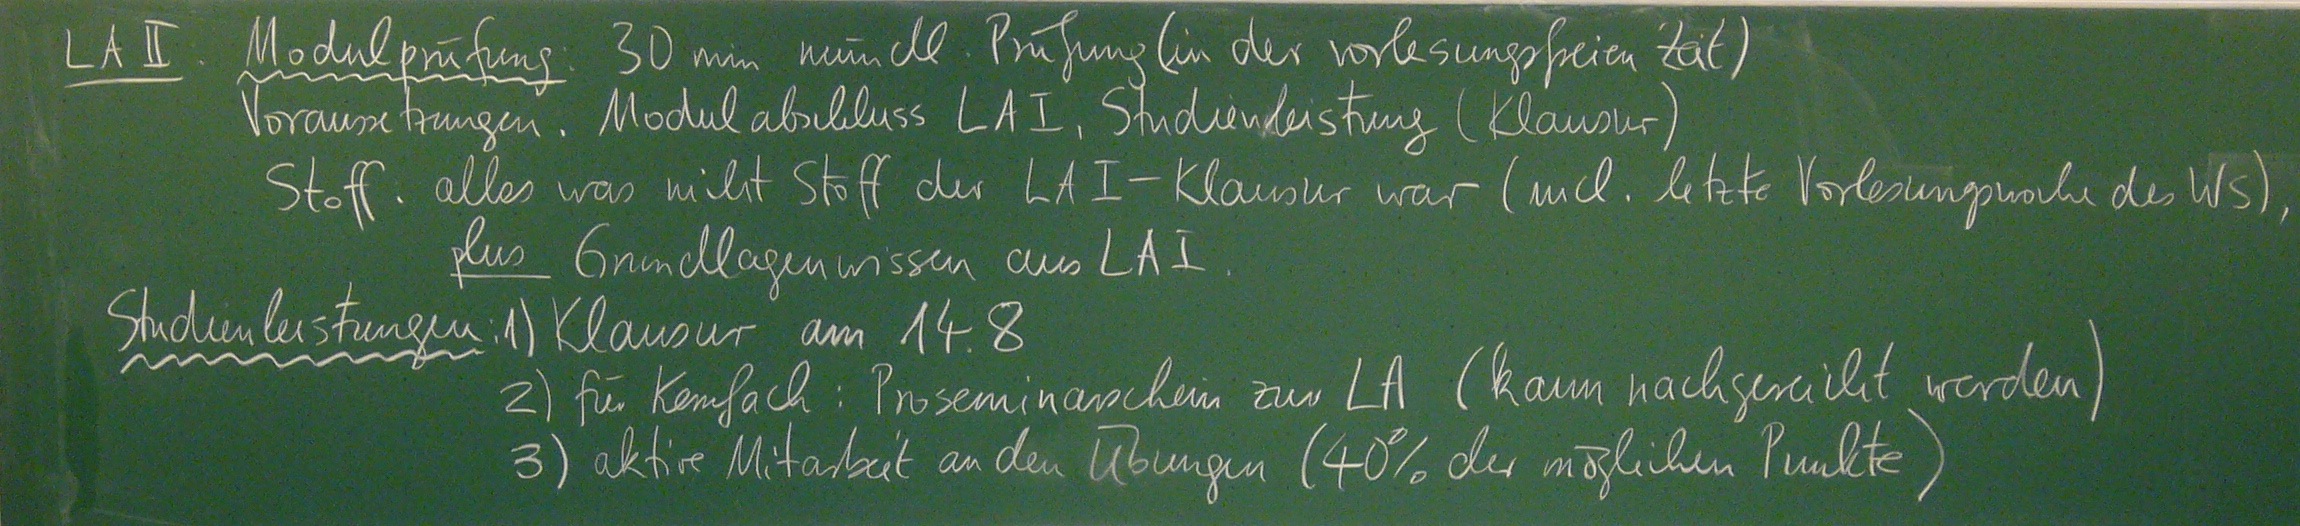 LA II. Modulprüfung: 30 min mündl. Prüfung (in der vorlesungsfreien Zeit)
Voraussetzungen. Modulabschluss LA I, Studienleistung (Klausur)
Stoff. alles was nicht Stoff der LA I-Klausur war (incl. letzte Vorlesungswoche des WS),
plus Grundlagenwissen aus LA I.
Studienleistungen: 1) Klausur am 14.8
2) für Kernfach: Proseminarschein zur LA (kann nachgereicht werden)
3) aktive Mitarbeit an den Übungen (40% der möglichen Punkte)